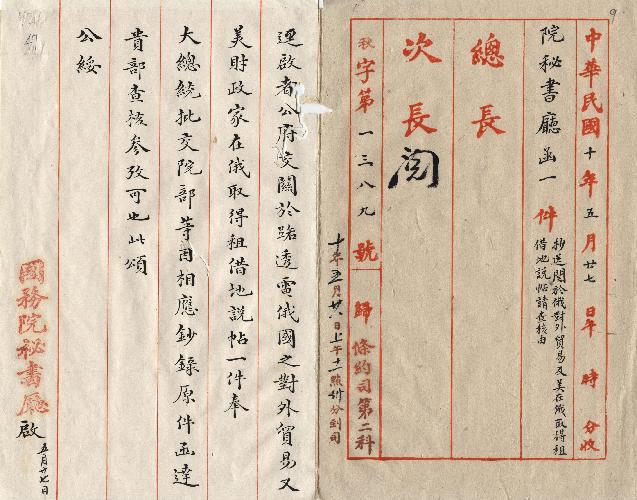 中華民國十年五月廿七日午時分收
院秘書廳函一件
抄送關於俄對外貿易及美在俄取得租
借地說帖請查核由
總長
次長
閱
秋字第一三八九號
歸條約司第二科
十年五月廿八日上午十一點 分到司
逕啟者公府交關於路透電俄國之對外貿易又
美財政家在俄取得租借地說帖一件奉
大總統批交院部等因相應鈔錄原件函達
貴部查核參攷可也此頌
公綏
國務院秘書廳啟
五月廿七日
9